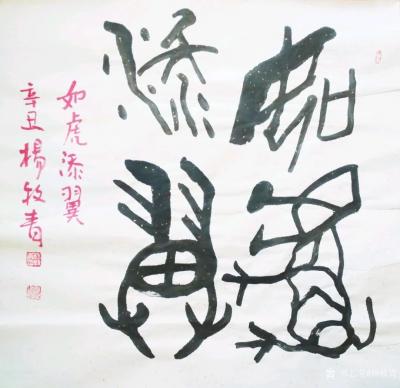 如虎
添翼
如虎添翼
辛丑杨牧青